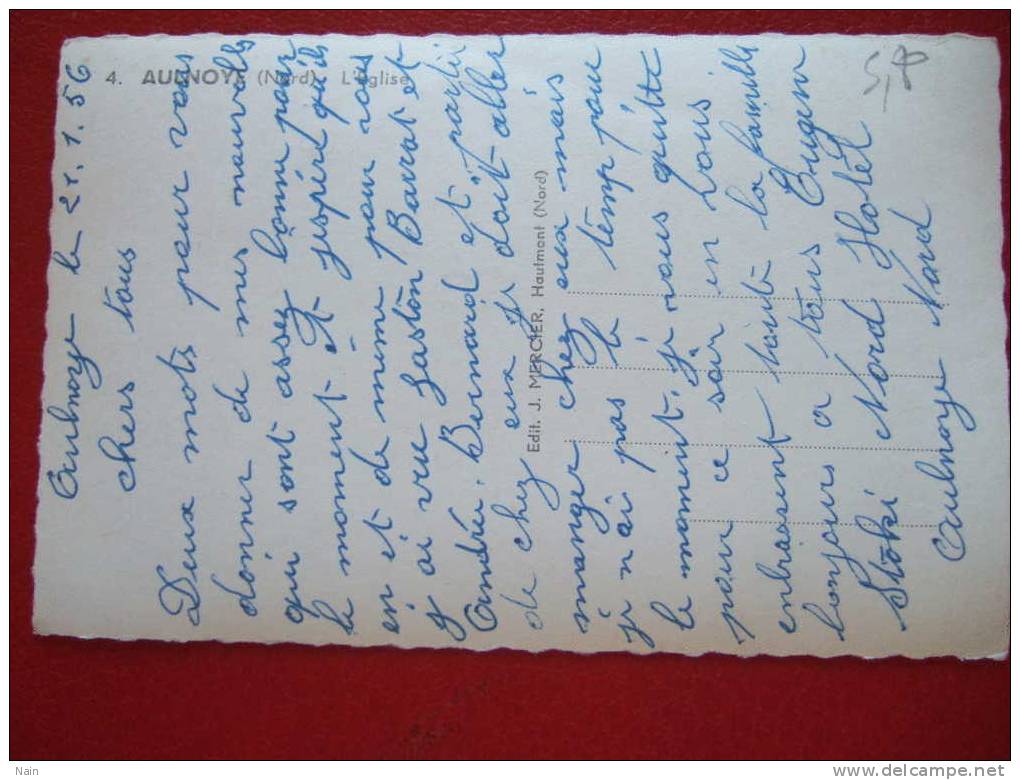 Aulnoye le 21.1.56
chers tous
Deux mots pour vous
donner de mes nouvelle
qui sont assez bonne pour
le moment - Et jespère qu'ils
en et de meme pour vous
j ai vu Gaston Barrat et
Andrée. Bernard est parti
de chez eux je doit aller
manger chez eux mais
je n ai pas le temp pour
le moment, je vous quitte
pour ce soir en vous
embrassent toute la famille
bonjours a tous Eugem
Stoki Nord Hotel
Aulnoye Nord
4. AULNOYE (Nord) L'Eglise
Edit. J. MERCIER, Hautmont (Nord)
Nain
delcampe.net